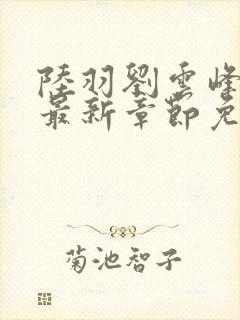 陸羽劉雲峰
最新章節免
菊池智子